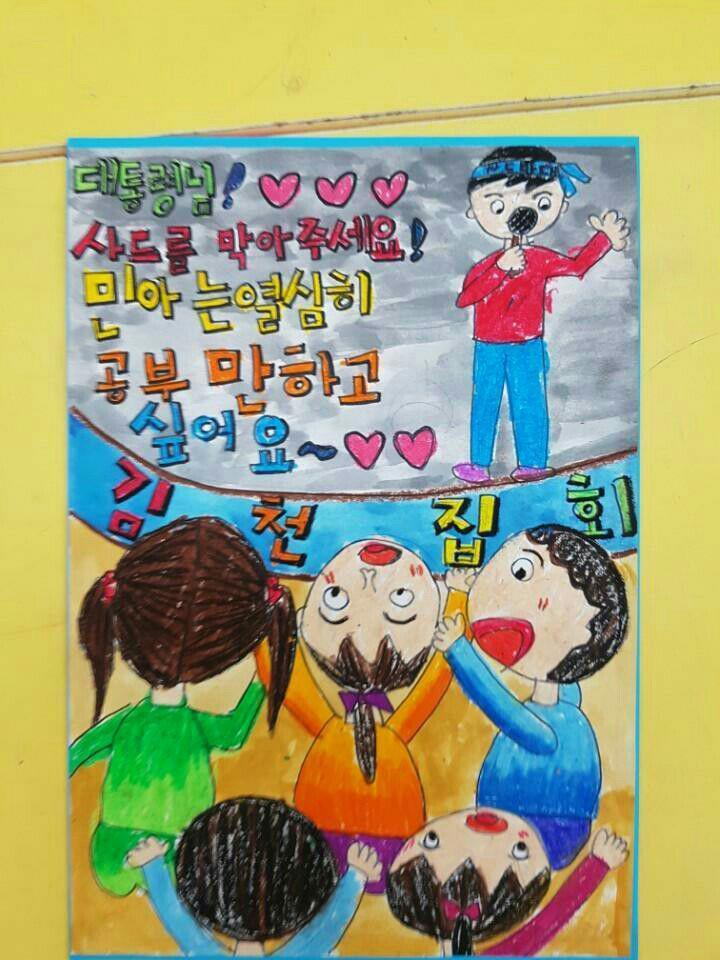 대통령님!
사드를 막아주세요!
민아는열심히
공부만하고
싶어요~
김천집회